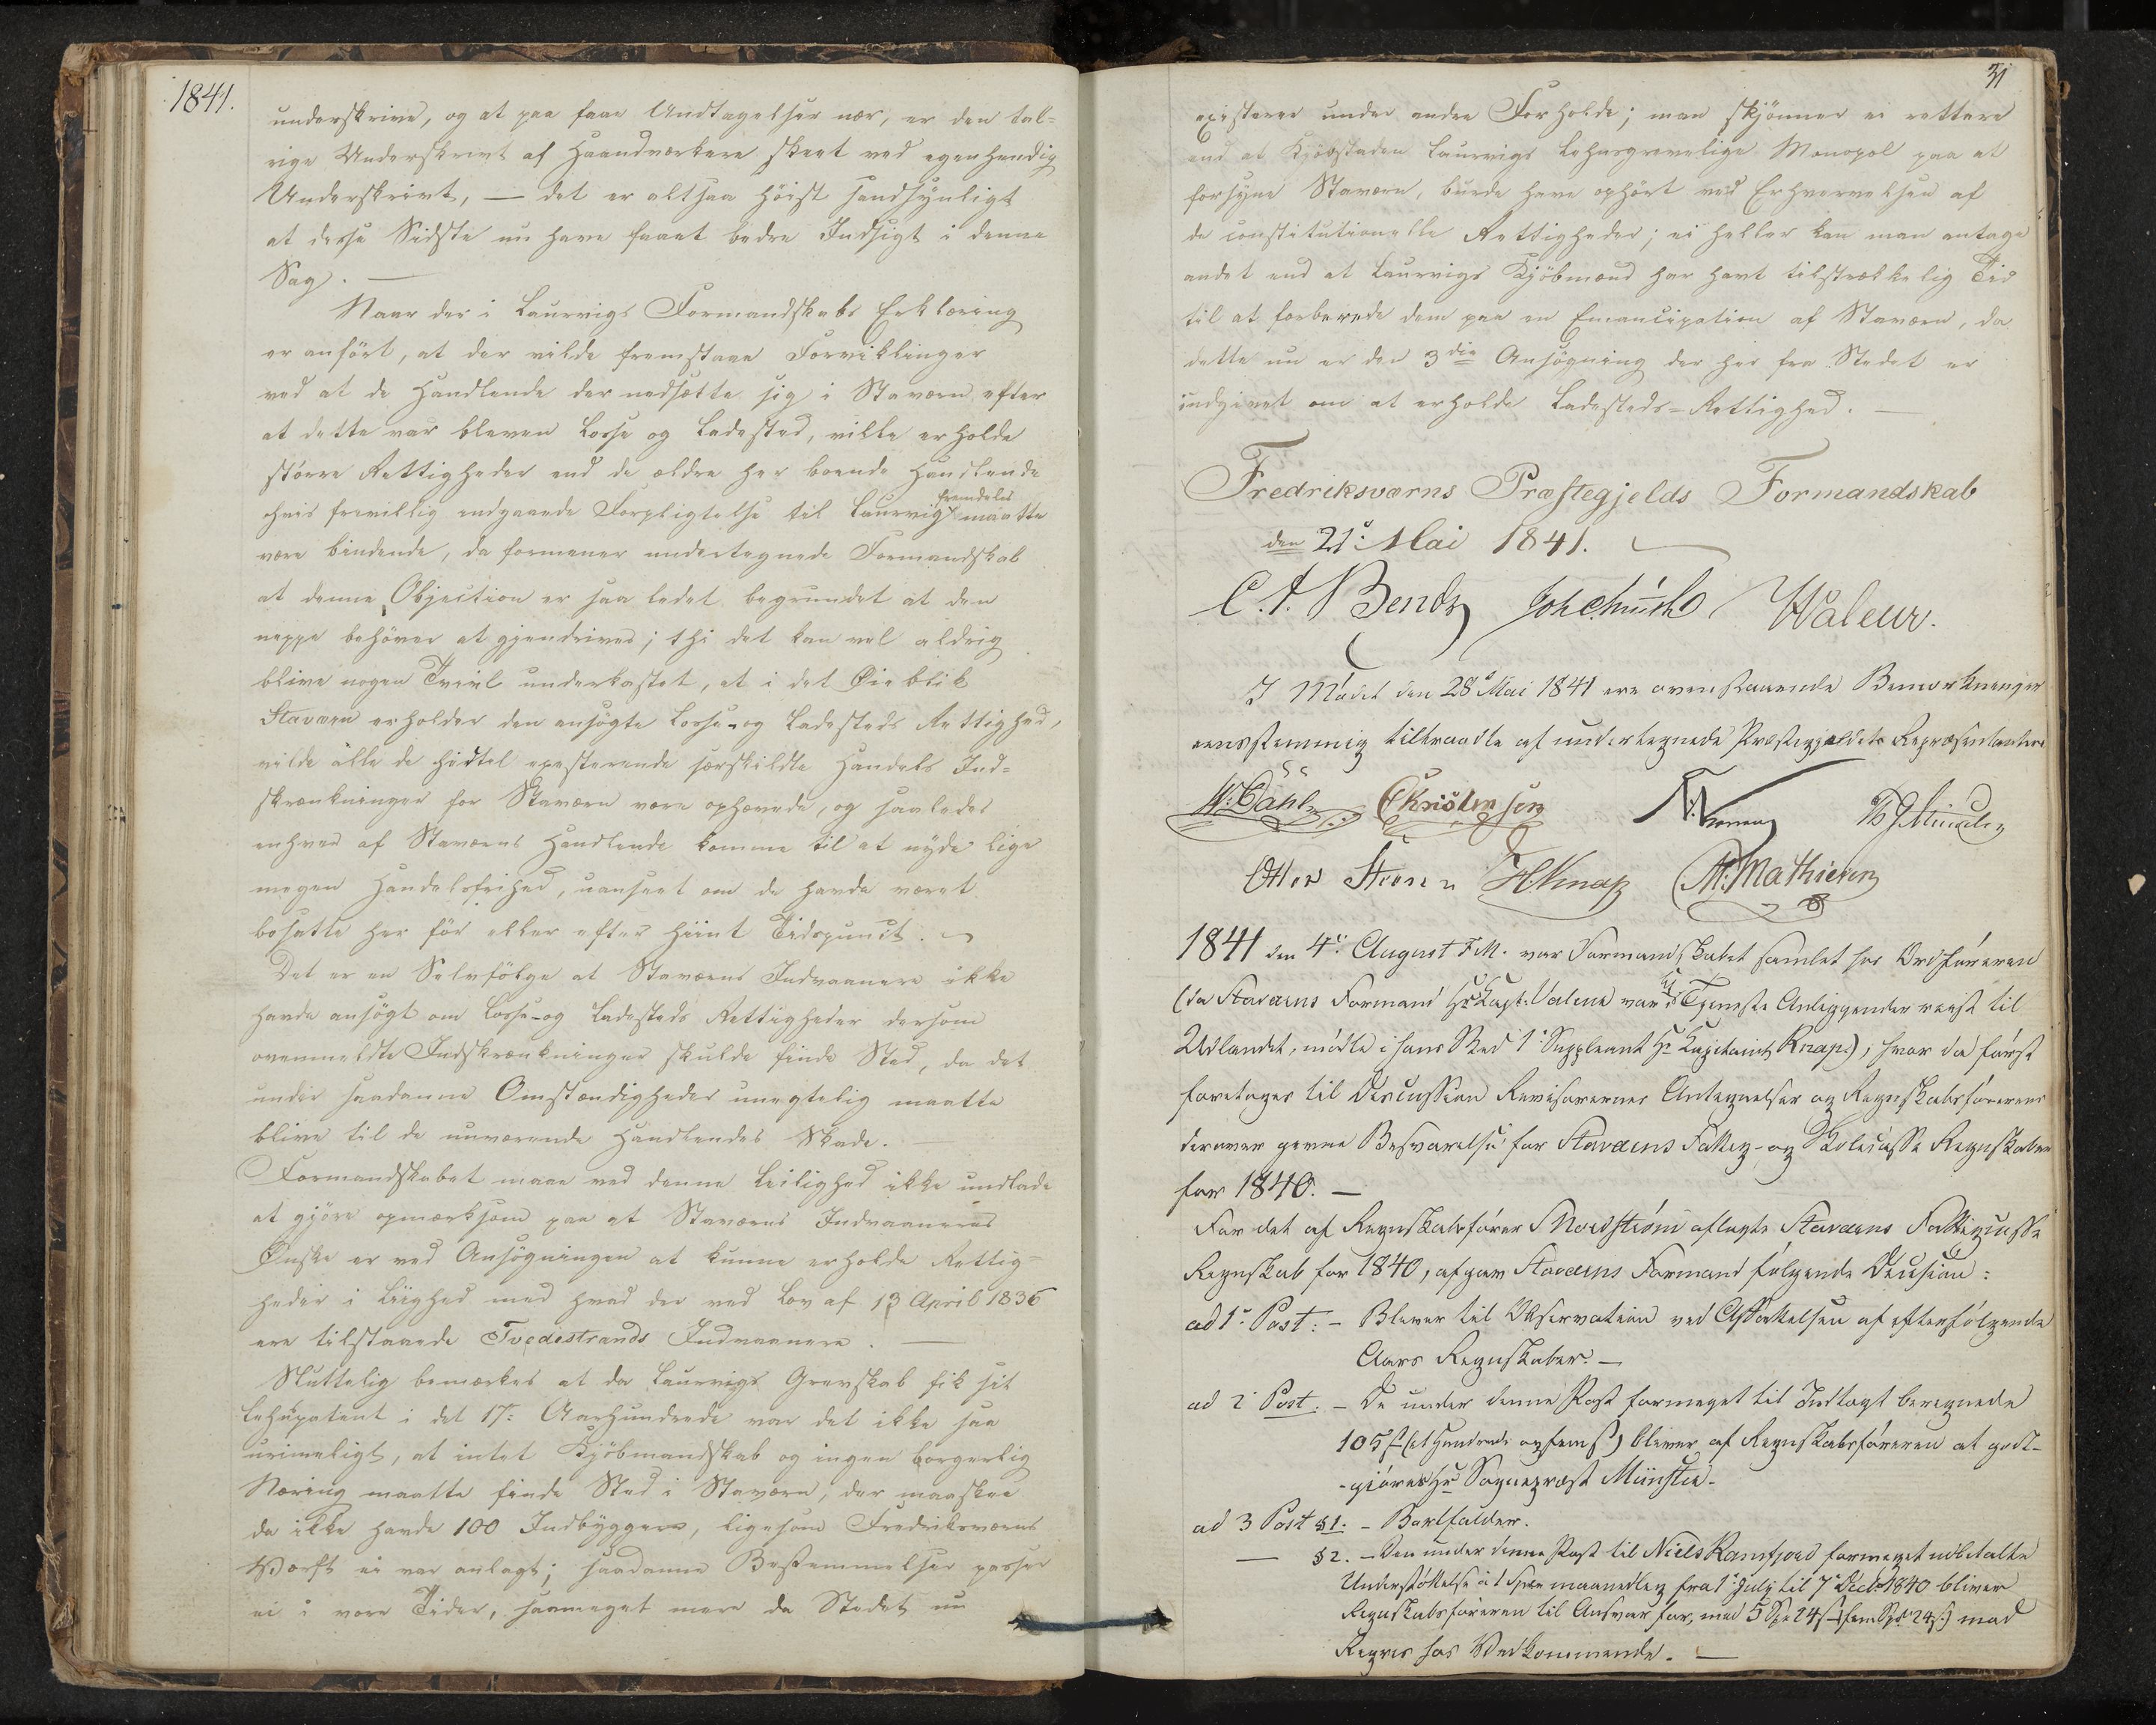 1841.
underskrive, og at paa faae Undtagelser nær, er den tal=
rige Underskrivt af Haandværkere skeet ved egenhændig
Underskrivt, — det er altsaa höist sandsynligt
at disse Sidste nu have faaet bedre Indsigt i denne
Sag. —
Naar der i Laurvigs Formandskabs Erklæring
er anfört, at der vilde fremstaae Forviklinger
ved at de Handlende der nedsætte sig i Staværn efter
at dette var bleven Losse og Ladested, ville erholde
större Rettigheder end de ældre her boende Handlende
hvis frivillig indgaaede Forpligtelse til Laurvig fremdeles maatte
være bindende, da formener undertegnede Formandskab
at denne Objection er saa ledet begrundet at den
neppe behöver at gjendrives; thi det kan vel aldrig
blive nogen Tvivl underkastet, at i det Øieblik
Staværn erholder den ansögte Losse- og Ladesteds Rettighed,
vilde alle de hidtil existerende særskildte Handels Ind=
skrænkninger for Staværn være ophævede, og saaledes
enhver af Staværns Handlende komme til at nyde lige
megen Handelsfrihed, uanseet om de havde været
bosatte her för eller efter hiint Tidspunct. —
Det er en Selvfölge at Staværns Indvaanere ikke
havde ansögt om Losse- og Ladesteds Rettigheder dersom
ovenmeldte Indskrænkninger skulde finde Sted, da det
under saadanne Omstændigheder unegtelig maatte
blive til de nuværende Handlendes Skade. —
Formandskabet maae ved denne Leilighed ikke undlade
at gjöre opmærksom paa at Staværns Indvaaneres
Ønske er ved Ansögningen at kunne erholde Rettig=
heder i Liighed med hvad der ved Lov af 13 April 1836
ere tilstaaede Tvedestrands Indvaanere. —
Sluttelig bemærkes at da Laurvigs Grevskab fik sit
Lehnspatent i det 17: Aarhundrede var det ikke saa
urimeligt, at intet Kjöbmandskab og ingen borgerlig
Næring maatte finde Sted i Staværn, der maaskee
da ikke havde 100 Indbyggere, ligesom Fredriksværns
Værft ei var anlagt; saadanne Bestemmelser passer
ei i vore Tider, saameget mere da Stedet nu
31
existerer under andre Forholde; man skjönner ei rettere
end at Kjöbstaden Laurvigs Lehnsgrevelige Monopol paa at
forsyne Staværn, burde have ophört ved Erhvervelsen af
de constitutionelle Rettigheder; ei heller kan man antage
andet end at Laurvigs Kjöbmænd har havt tilstrækkelig Tid
til at forberede dem paa en Emancipation af Staværn, da
dette nu er den 3die Ansögning der her fra Stedet er
indgivet om at erholde Ladesteds=Rettighed. —
Fredriksværns Præstegjelds Formandskab
den 21: Mai 1841.
C. A. Bendz Waleur.
I Mödet den 28: Mai 1841 ere ovenstaaende Bemærkninger
eensstemmig tiltraadte af undertegnede Præstegjeldets Repræsentantere
W. Dahl Christensen
FCKnap M. Mathiesen
1841 den 4: August F.M. var Formandskabet samlet hos Ordföreren
(da Staværns Formand Hr Capt: Valeur var i Tjeneste Anliggender reist til
Udlandet, mödte i hans Sted 1: Suppleant Hr Capitain Knap.); hvor da först
foretages til Discussion Revisorernes Antegnelser og Regnskabsförerens
derover givne Besvarelse for Staværns Fattig- og Skolecasse Regnskaber
for 1840. —
For det af Regnskabsförer Nordström aflagte Staværns Fattigcasse
Regnskab for 1840, afgav Staværns Formand fölgende Decision:
ad 1: Post: — Bliver til Observation ved Afsættelsen af efterfölgende
Aars Regnskaber. —
ad 2 Post: — De under denne Post formeget til Indtægt beregnede
105 ß (et Hundrede og fem ß) bliver af Regnskabsföreren at godt-
-gjöres Hr Sognepræst Münster.
ad 3 Post §1: — Bortfalder.
— §2. — Den under denne Post til Niels Ramfjord formeget udbetalte
Understöttelse à 1 Spd maanedlig fra 1: July til 7: Decbr 1840 bliver
Regnskabsföreren til Ansvar for, med 5 Spd 24 ß (fem Spd 24 ß) mod
Regres hos Vedkommende. —